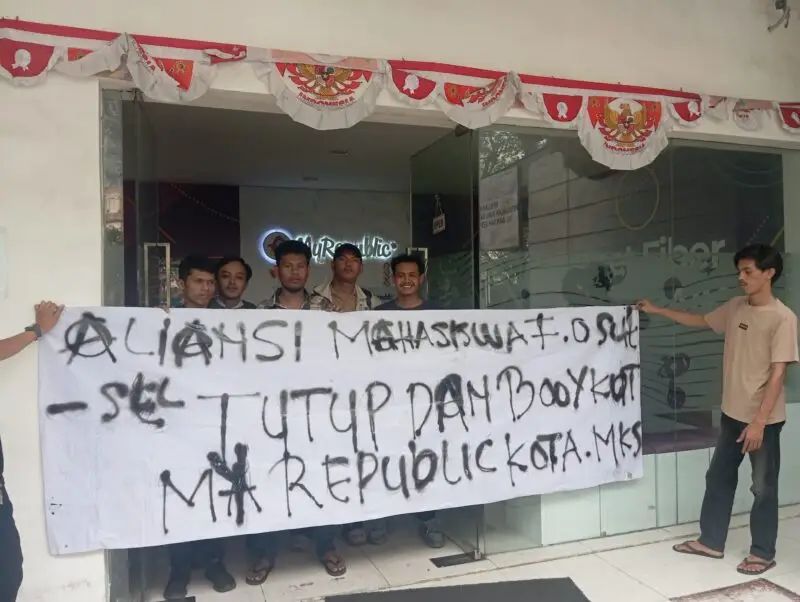 INDONESIA
INDONESIA
MyRepublic
OPEN
Fiber
ALIANSI MAHASISWA I.O SUL
-SEL TUTUP DAN BOOYKOT
MY REPUBLIC KOTA.MKS